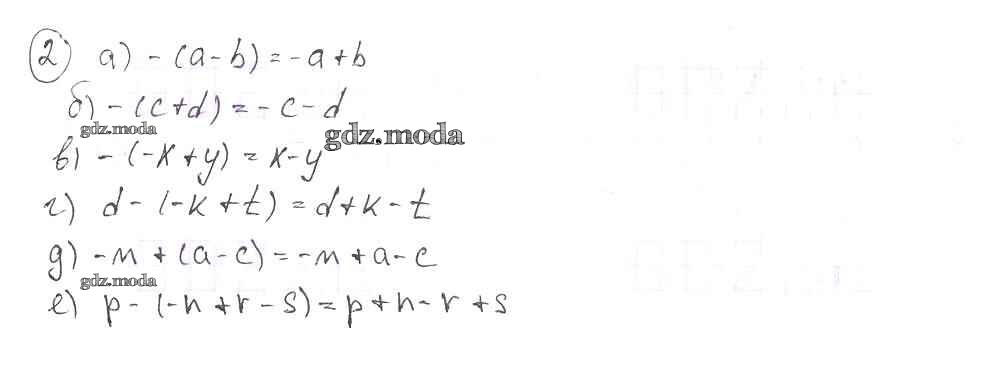 2) а) -(a-b)=-a+b
б) -(c+d)=-c-d
gdz.moda
gdz.moda
в) -(-x+y)=x-y
г) d-(-k+t)=d+k-t
д) -m+(a-c)=-m+a-c
gdz.moda
е) p-(-n+r-s)=p+n-r+s